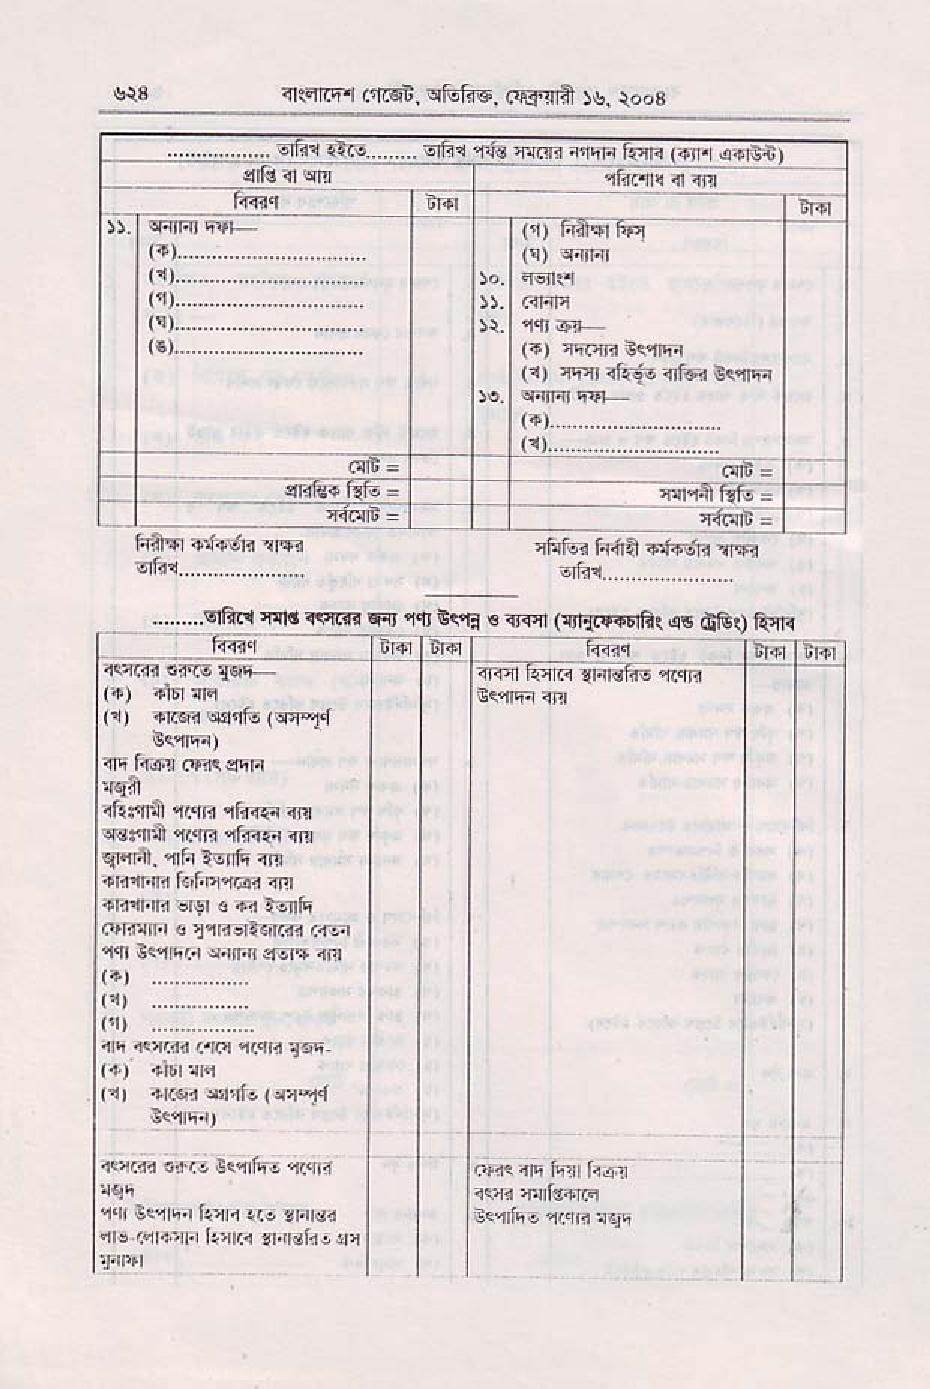 ৬২৪ বাংলাদেশ গেজেট, অতিরিক্ত, ফেব্রুয়ারী ১৬, ২০০৪
................... তারিখ হইতে......... তারিখ পর্যন্ত সময়ের নগদান হিসাব (ক্যাশ একাউন্ট)
প্রাপ্তি বা আয়
বিবরণ টাকা
১১. অন্যান্য দফা—
(ক)..................................
(খ)..................................
(গ)..................................
(ঘ)..................................
(ঙ)..................................
মোট =
প্রারম্ভিক স্থিতি =
সর্বমোট =
পরিশোধ বা ব্যয়
টাকা
(গ) নিরীক্ষা ফিস্
(ঘ) অন্যান্য
১০. লভ্যাংশ
১১. বোনাস
১২. পণ্য ক্রয়—
(ক) সদস্যের উৎপাদন
(খ) সদস্য বহির্ভূত ব্যক্তির উৎপাদন
১৩. অন্যান্য দফা—
(ক)...............................
(খ)...............................
মোট =
সমাপনী স্থিতি =
সর্বমোট =
নিরীক্ষা কর্মকর্তার স্বাক্ষর
তারিখ.......................
সমিতির নির্বাহী কর্মকর্তার স্বাক্ষর
তারিখ........................
.........তারিখে সমাপ্ত বৎসরের জন্য পণ্য উৎপন্ন ও ব্যবসা (ম্যানুফেকচারিং এন্ড ট্রেডিং) হিসাব
বিবরণ টাকা টাকা বিবরণ টাকা টাকা
বৎসরের শুরুতে মুজদ—
(ক) কাঁচা মাল
(খ) কাজের অগ্রগতি (অসম্পূর্ণ
উৎপাদন)
বাদ বিক্রয় ফেরৎ প্রদান
মজুরী
বহিঃগামী পণ্যের পরিবহন ব্যয়
অন্তঃগামী পণ্যের পরিবহন ব্যয়
জ্বালানী, পানি ইত্যাদি ব্যয়
কারখানার জিনিসপত্রের ব্যয়
কারখানার ভাড়া ও কর ইত্যাদি
ফোরম্যান ও সুপারভাইজারের বেতন
পণ্য উৎপাদনে অন্যান্য প্রত্যক্ষ ব্যয়
(ক) .................
(খ) .................
(গ) ..................
বাদ বৎসরের শেসে পণ্যের মুজদ-
(ক) কাঁচা মাল
(খ) কাজের অগ্রগতি (অসম্পূর্ণ
উৎপাদন)
ব্যবসা হিসাবে স্থানান্তরিত পণ্যের
উৎপাদন ব্যয়
বৎসরের শুরুতে উৎপাদিত পণ্যের
মজুদ
পণ্য উৎপাদন হিসাব হতে স্থানান্তর
লাভ-লোকসান হিসাবে স্থানান্তরিত গ্রস
মুনাফা
ফেরৎ বাদ দিয়া বিক্রয়
বৎসর সমাপ্তিকালে
উৎপাদিত পণ্যের মজুদ